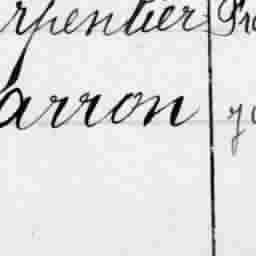 rpentier Fr
arron y